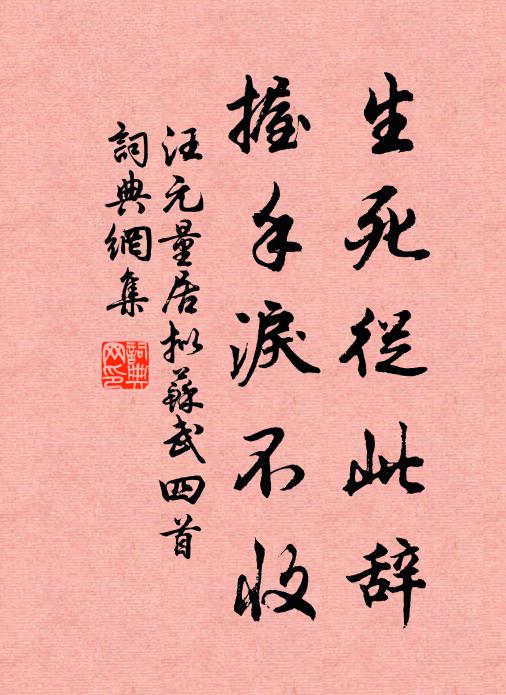 生死從此辞
握手淚不收
汪元量居拟蘇武四首
詞典網集
詞典網印